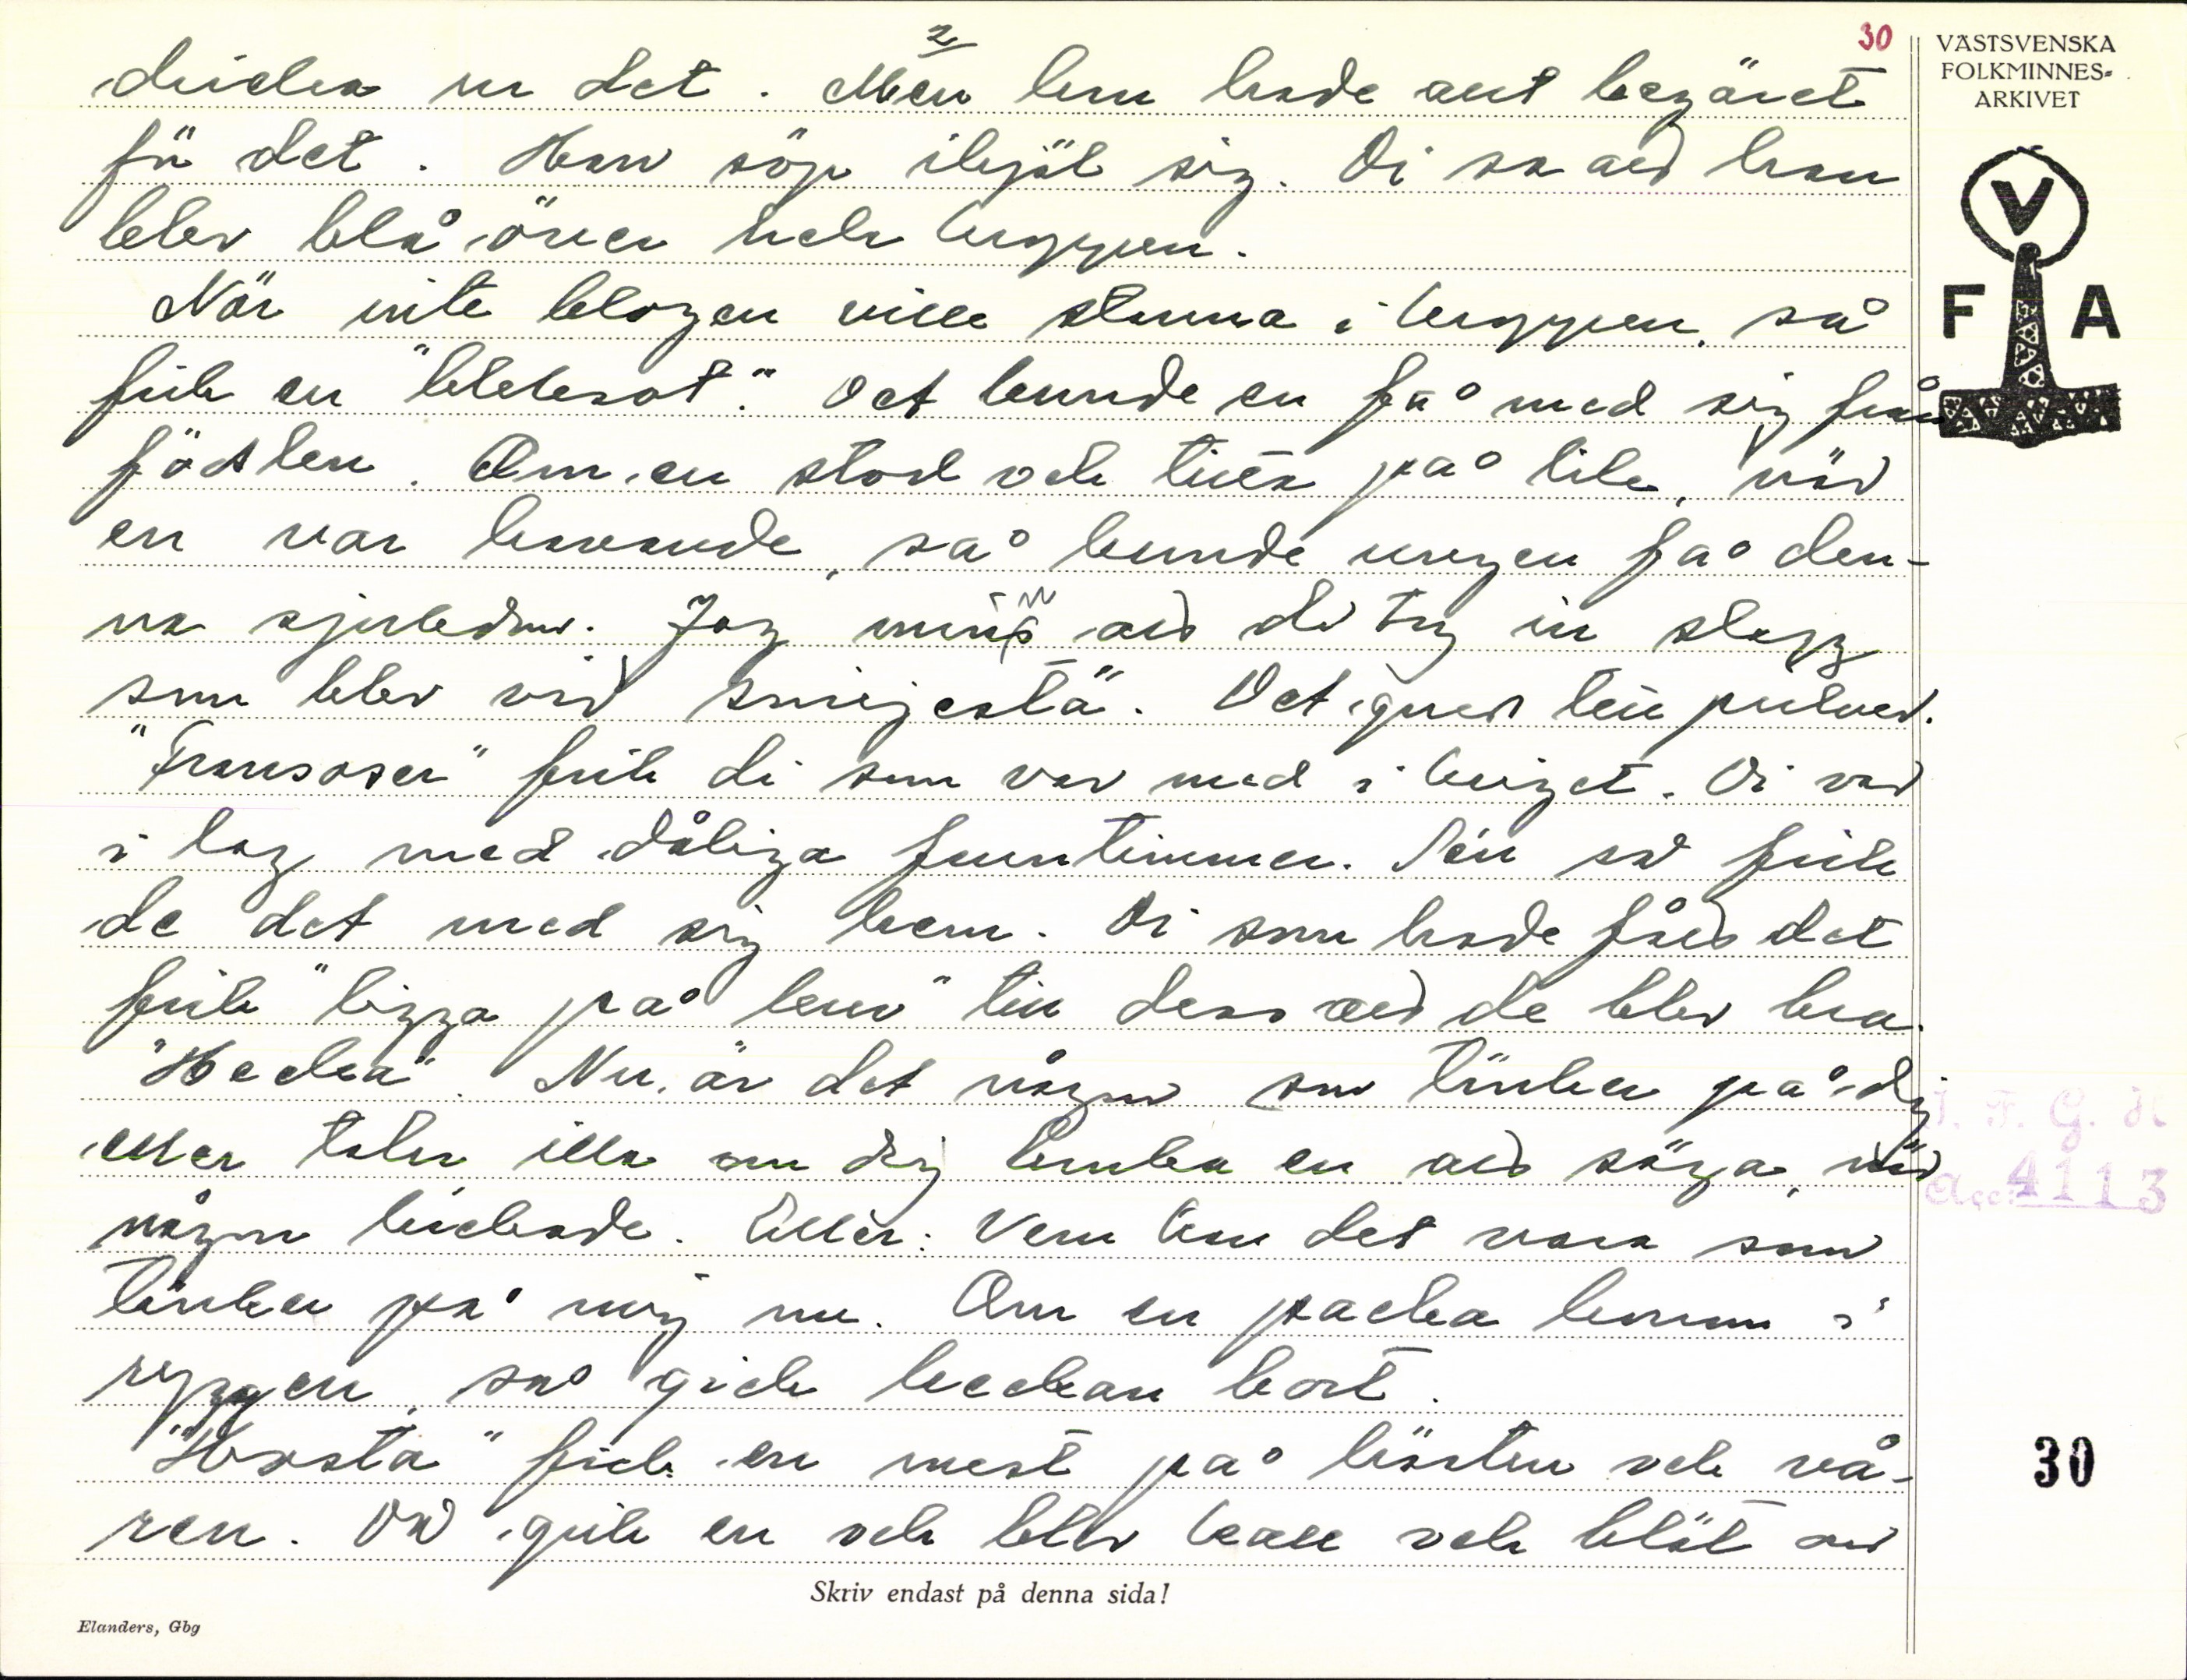 2
30
dricka ur det. Men han hade ant begäret
för det. Han söp ihjäl sig. Di sa ad han
blev blå över hela kroppen.
När inte blogen ville stanna i kroppen, så
fick en "bleksot". Det kunde en få med sig från
födslen. Om en stod och titta på lik, när
en var havande, så kunde ungen få den-
na sjukdom. Jag minns ad di tog in slagg
som blev vid smijestä. Det gned tell pulver.
"Fransoser" fick di som var med i kriget. Di var
i lag med dåliga fruntimmer. Sen så fick
de det med sig hem. Di som hade fåed det
fick "ligga på kur" till dess ad de blev bra.
"Hecka". Nu är det någon som tänker på dig
eller talar illa om dig bruka en ad säga, när
någon hickade. Eller: Vem kan det vara som
tänker på mig nu. Om en packa honom i
ryggen, så gick heckan bort.
"Hosta" fick en mest på hösten och vå-
ren. Då gick en och blev kall och blöt om
VÄSTSVENSKA
FOLKMINNES-
ARKIVET
V
F A
I. F. G. H.
Acc: 4113
30
Skriv endast på denna sida!
Elanders, Gbg